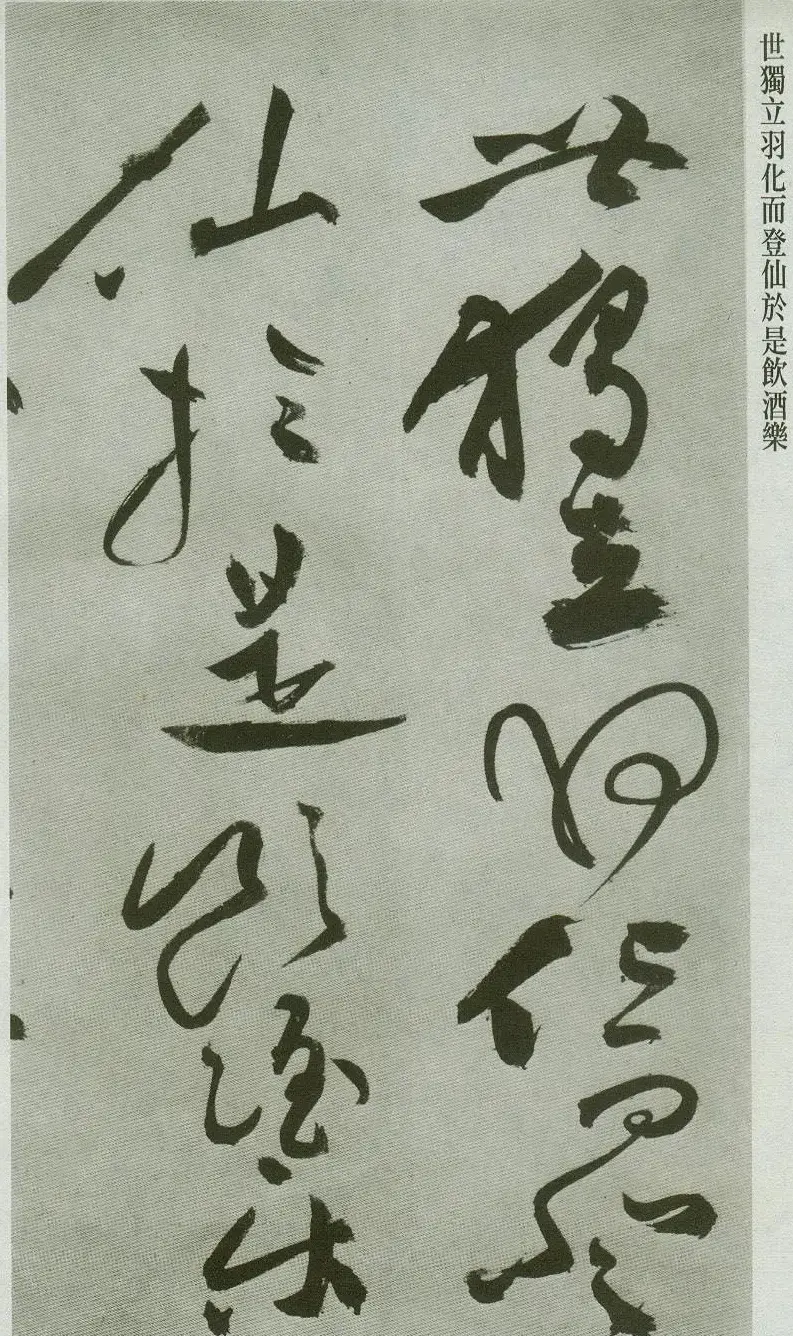 世獨立羽化而登仙於是飲酒樂
世獨立羽化而登
仙於是飲酒樂